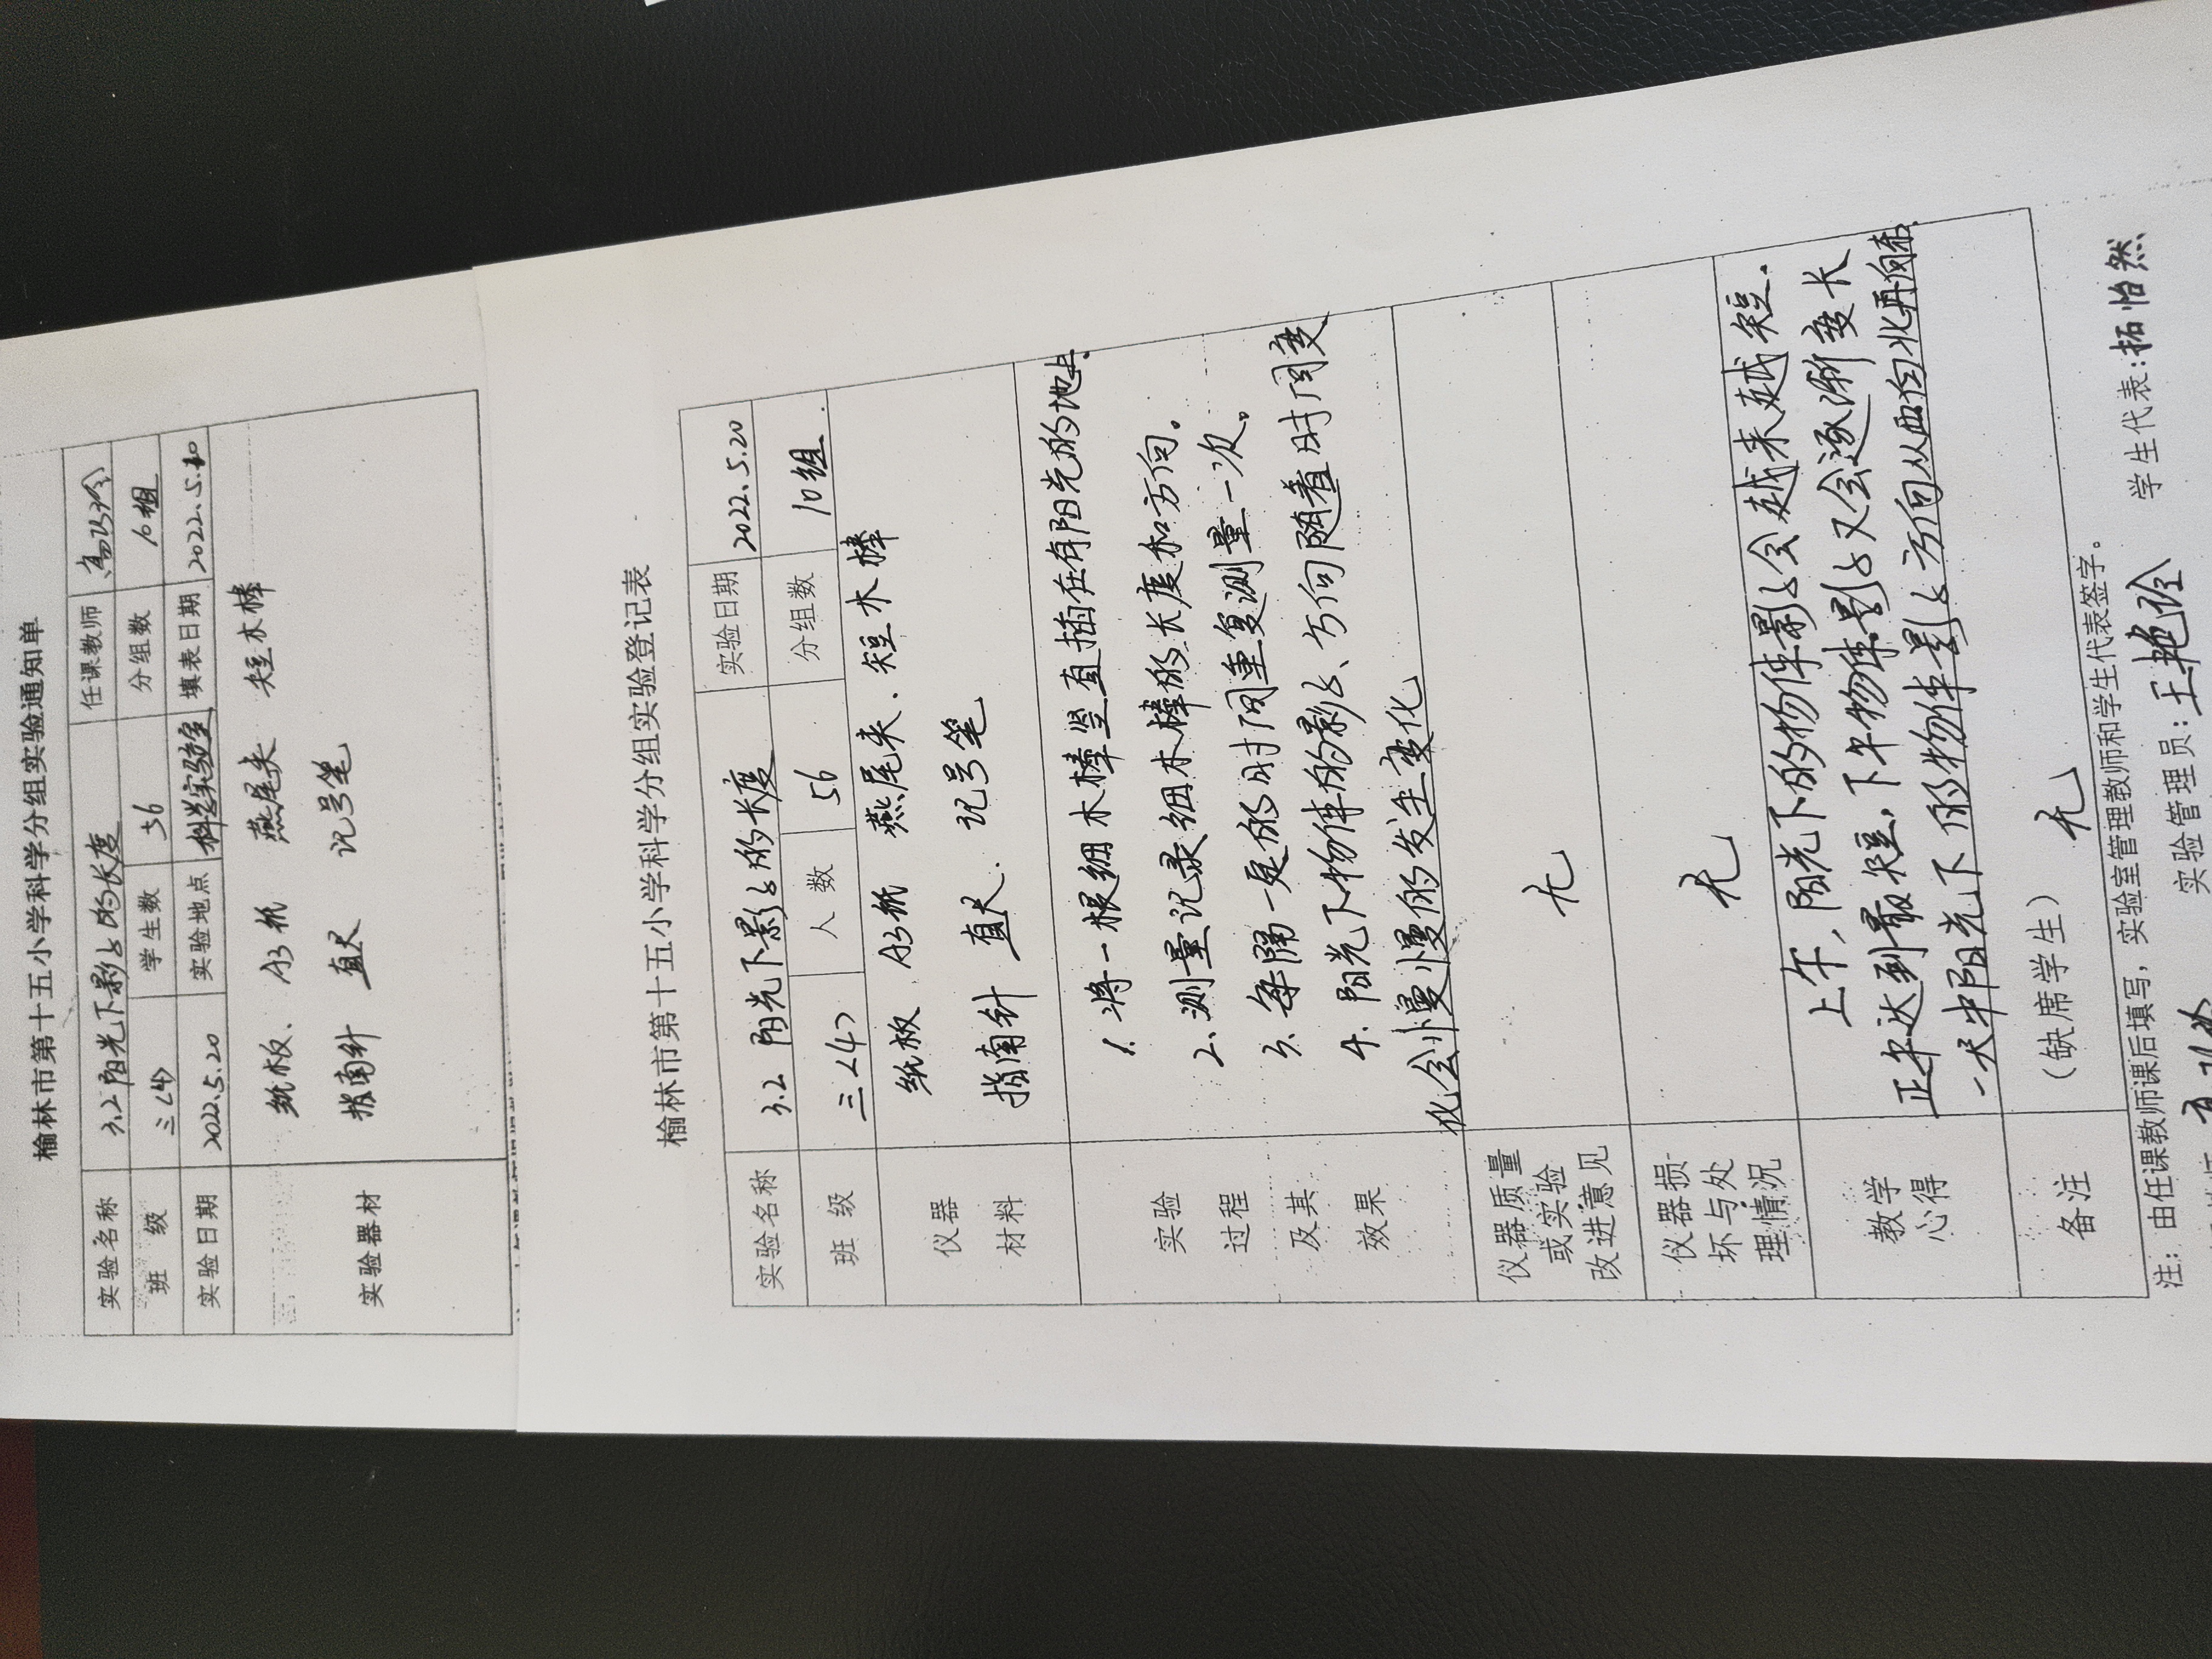 榆林市第十五小学科学分组实验通知单
实验名称 3.2阳光下影子的长度 任课教师
班 级 三<4> 学生数 56 分组数 10组
实验日期 2022.5.20 实验地点 科学实验室 填表日期 2022.5.10
实验器材
纸板、A3纸 燕尾夹 短木棒
指南针 直尺 记号笔
榆林市第十五小学科学分组实验登记表
实验名称 3.2 阳光下影子的长度 实验日期 2022.5.20
班 级 三<4> 人 数 56 分组数 10组.
仪器
材料
纸板 A3纸 燕尾夹、短木棒
指南针 直尺. 记号笔
实验
过程
及其
效果
1.将一根细木棒竖直插在有阳光的地上.
2.测量记录细木棒的长度和方向。
3.每隔一定的时间重复测量一次。
4.阳光下物体的影子、方向随着时间变
化会慢慢的发生变化
仪器质量
或实验
改进意见
无
仪器损
坏与处
理情况
无
教学
心得
上午,阳光下的物体影子会越来越短.
正午达到最短,下午物体影子又会逐渐变长
一天中阳光下的物体影子方向从西向北再向东.
备注
(缺席学生) 无
注: 由任课教师课后填写, 实验室管理教师和学生代表签字。
实验管理员: 学生代表:拓怡然